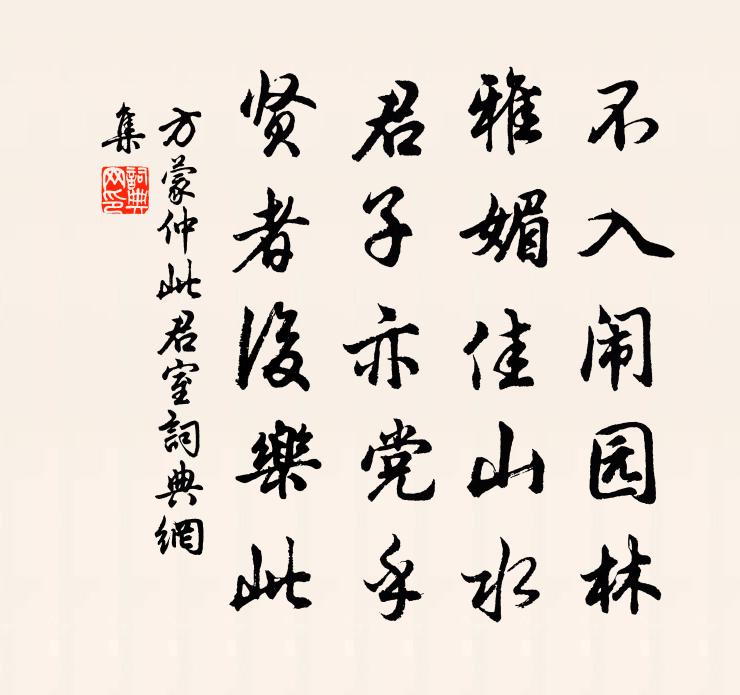 不入闹园林
雅媚佳山水
君子亦党乎
贤者後樂此
方蒙仲此君室詞典網
集
詞典
网印